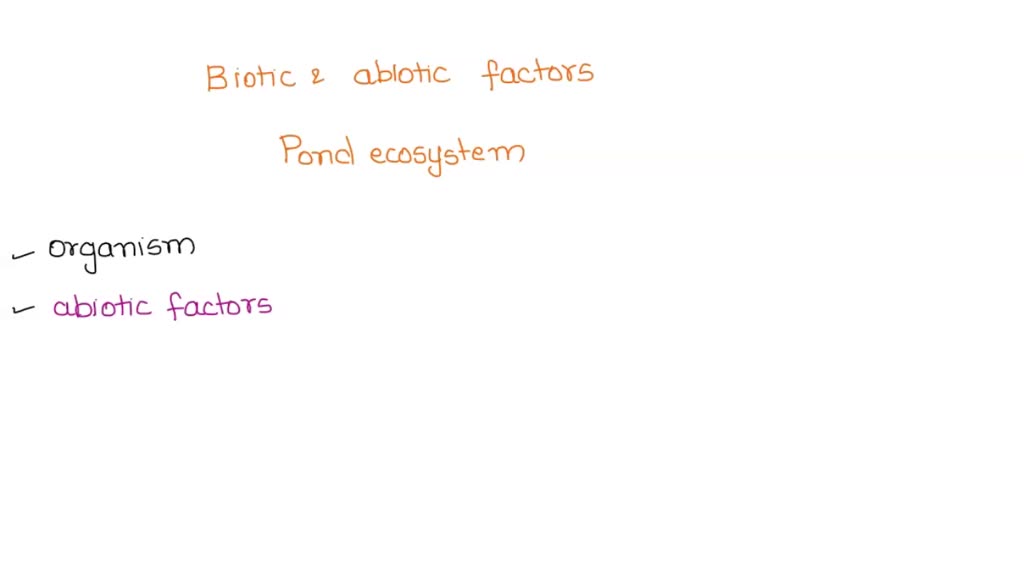 Biotic & abiotic factors
Pond ecosystem
organism
abiotic factors